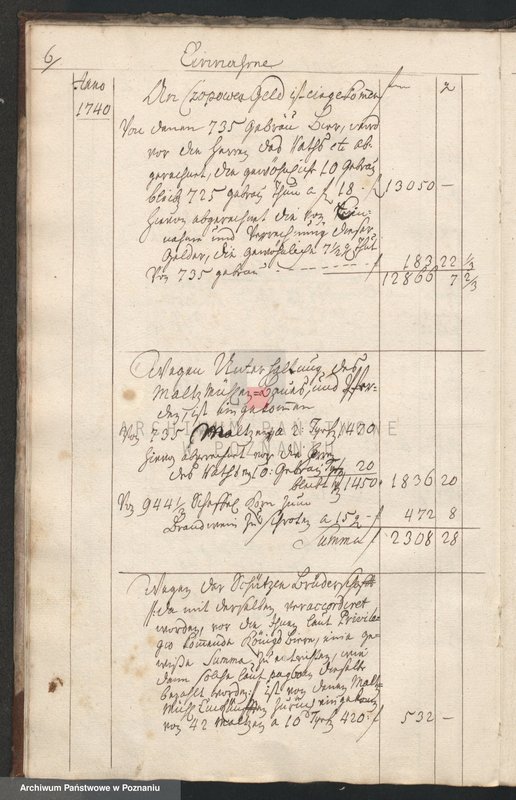 6/
Einnahme
Anno
1740
An Czopowen Geld ist eingekommen
Von denen 735 Gebräu Bier, werd
vor die Herren des Raths et ab-
gerechnet, die gewöhnlich 10 Gebräu
bleib 725 gebräu thun a f 18 - f 13050 —
hievon abgerechnet die von Ein-
nahm und Verrechnung dieser
Gelder, die gewöhnliche 7½ g thut
Von 735 gebräu - - - - f 183 22 1/3
12866 7 2/3
Wegen Unterhaltung des
Maltzmühlen
den, ist eingekommen
Von 735 Maltzen a 2 Tymf 1470
hievon abgerechnet vor die Herren
des Raths 10: Gebräu Tymf 20
bleibt 1450 · 1836 20
Von 944½ Scheffel Korn zum
Brandwein zu schroten a 15 g - f 472 8
Summa f 2308 28
Wegen der Schützen Brüderschafft
da mit derselben veraccordiret
worden, vor die Ihnen laut Privile-
gio kommende Königs Biere, eine ge-
wisse Summa zu entrichten, wie
denn solche laut
bezahlt worden: ist von denen Maltz
von 42 Maltzen a 10 Tymf 420: f 532 —
ARCHIWUM PAŃSTWOWE
W POZNANIU
Archiwum Państwowe w Poznaniu